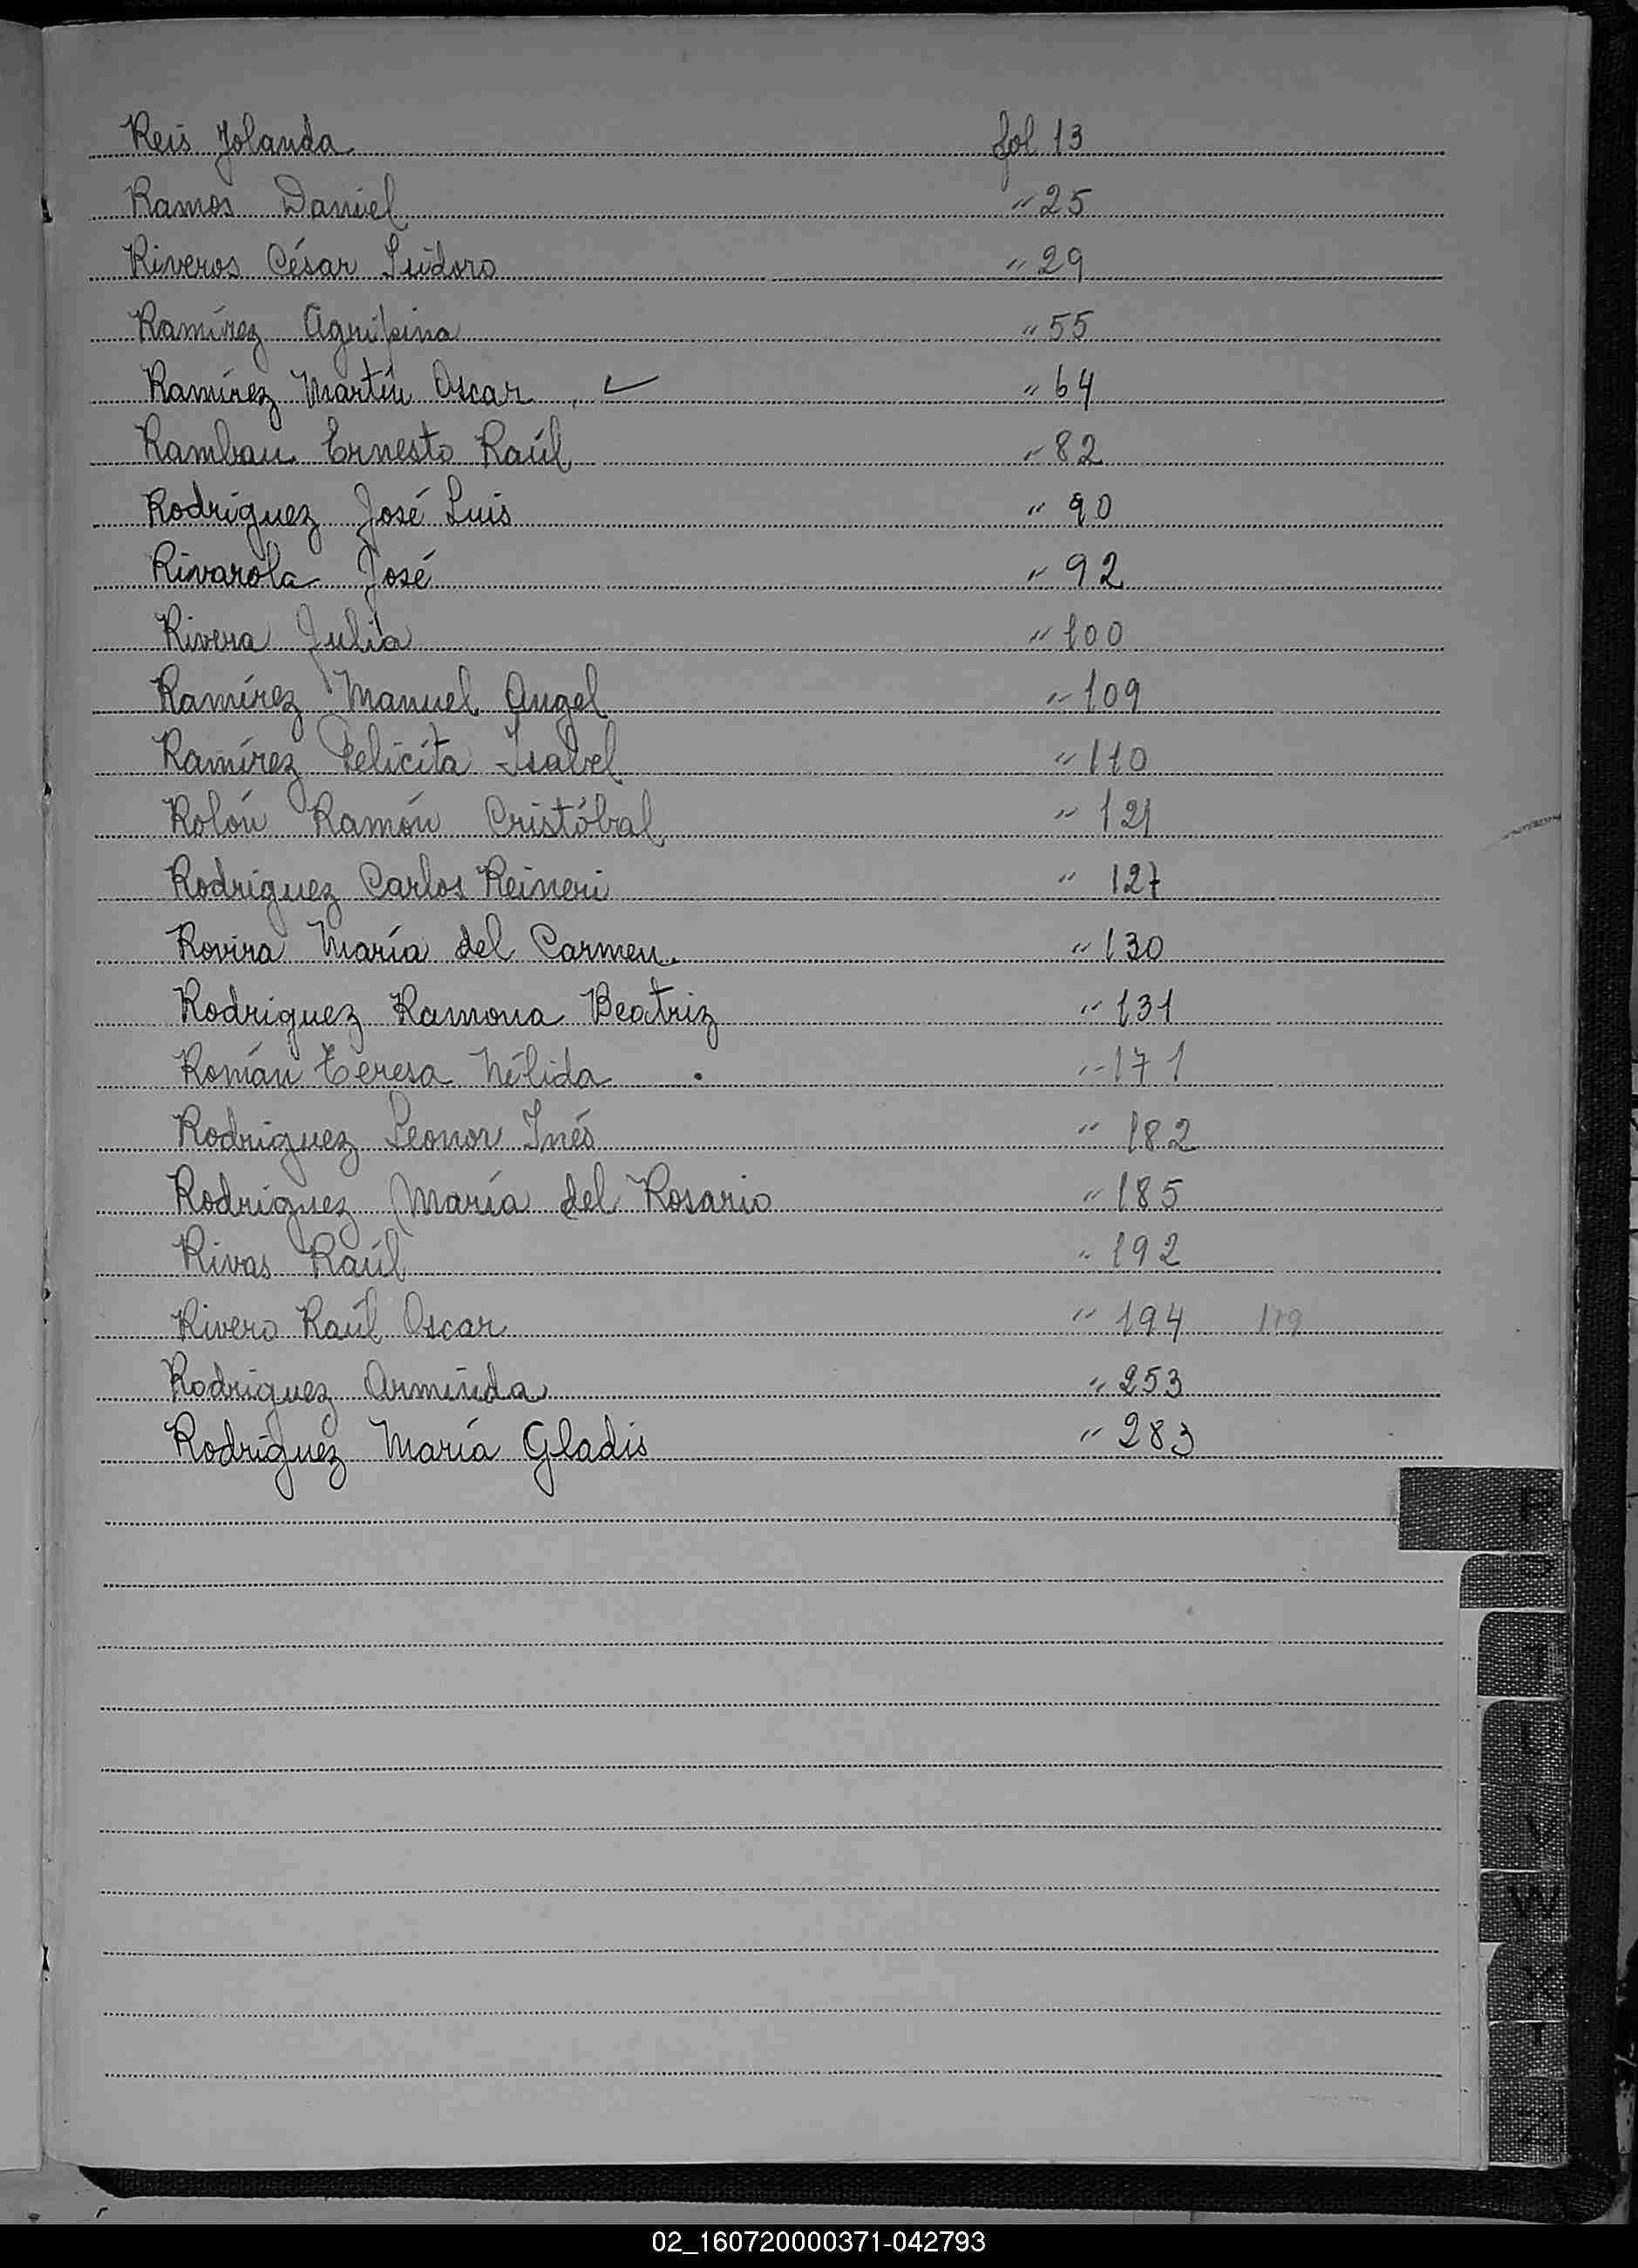 Reis Yolanda fol 13
Ramos Daniel " 25
Riveros César Isidoro " 29
Ramírez Agripina " 55
Ramírez Martín Oscar " 64
Rambau Ernesto Raúl " 82
Rodríguez José Luis " 90
Rivarola José " 92
Rivera Julia " 100
Ramírez Manuel Angel " 109
Ramírez Felicita Isabel " 110
Rolón Ramón Cristóbal " 121
Rodríguez Carlos Reineri " 127
Rovira María del Carmen. " 130
Rodríguez Ramona Beatriz " 131
Román Teresa Nélida " 171
Rodríguez Leonor Inés " 182
Rodríguez María del Rosario " 185
Rivas Raúl " 192
Rivero Raúl Oscar " 194
Rodríguez Arminda " 253
Rodríguez María Gladis " 283
R
T
V
W
X
Z
02_160720000371-042793